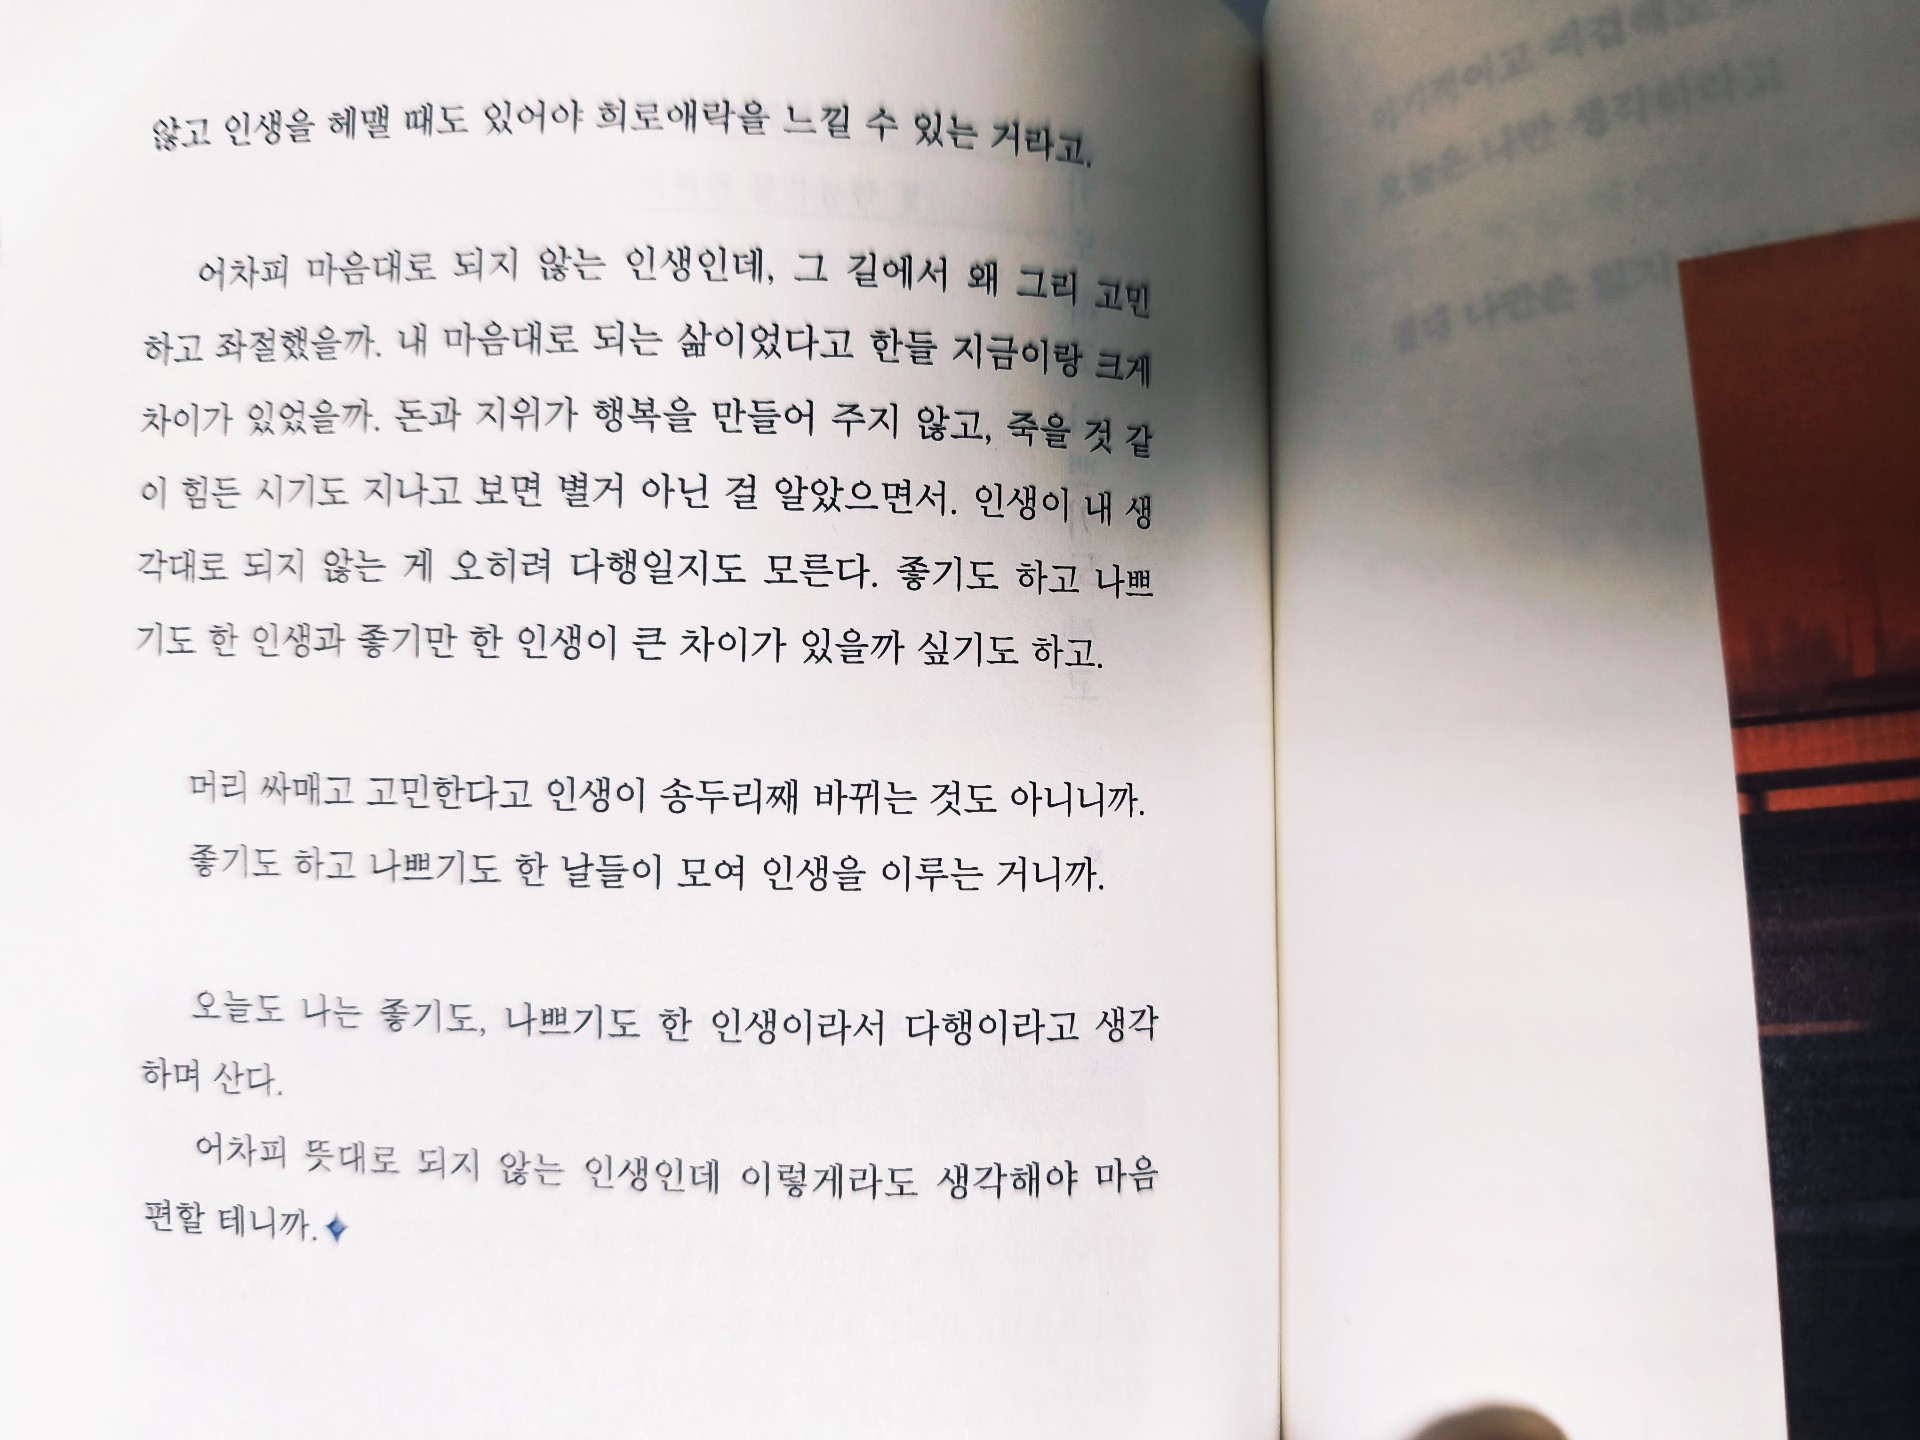 않고 인생을 헤맬 때도 있어야 희로애락을 느낄 수 있는 거라고.
어차피 마음대로 되지 않는 인생인데, 그 길에서 왜 그리 고민
하고 좌절했을까. 내 마음대로 되는 삶이었다고 한들 지금이랑 크게
차이가 있었을까. 돈과 지위가 행복을 만들어 주지 않고, 죽을 것 같
이 힘든 시기도 지나고 보면 별거 아닌 걸 알았으면서. 인생이 내 생
각대로 되지 않는 게 오히려 다행일지도 모른다. 좋기도 하고 나쁘
기도 한 인생과 좋기만 한 인생이 큰 차이가 있을까 싶기도 하고.
머리 싸매고 고민한다고 인생이 송두리째 바뀌는 것도 아니니까.
좋기도 하고 나쁘기도 한 날들이 모여 인생을 이루는 거니까.
오늘도 나는 좋기도, 나쁘기도 한 인생이라서 다행이라고 생각
하며 산다.
어차피 뜻대로 되지 않는 인생인데 이렇게라도 생각해야 마음
편할 테니까.
오늘은 나만 생각하라고
나만은